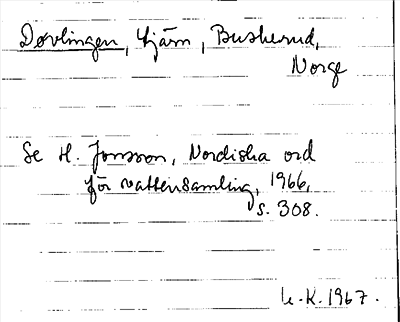 Dovlingen, tjärn, Buskerud,
Norge
Se H. Jonsson, Nordiska ord
för vattensamling, 1966,
s. 308.
L.-K. 1967.